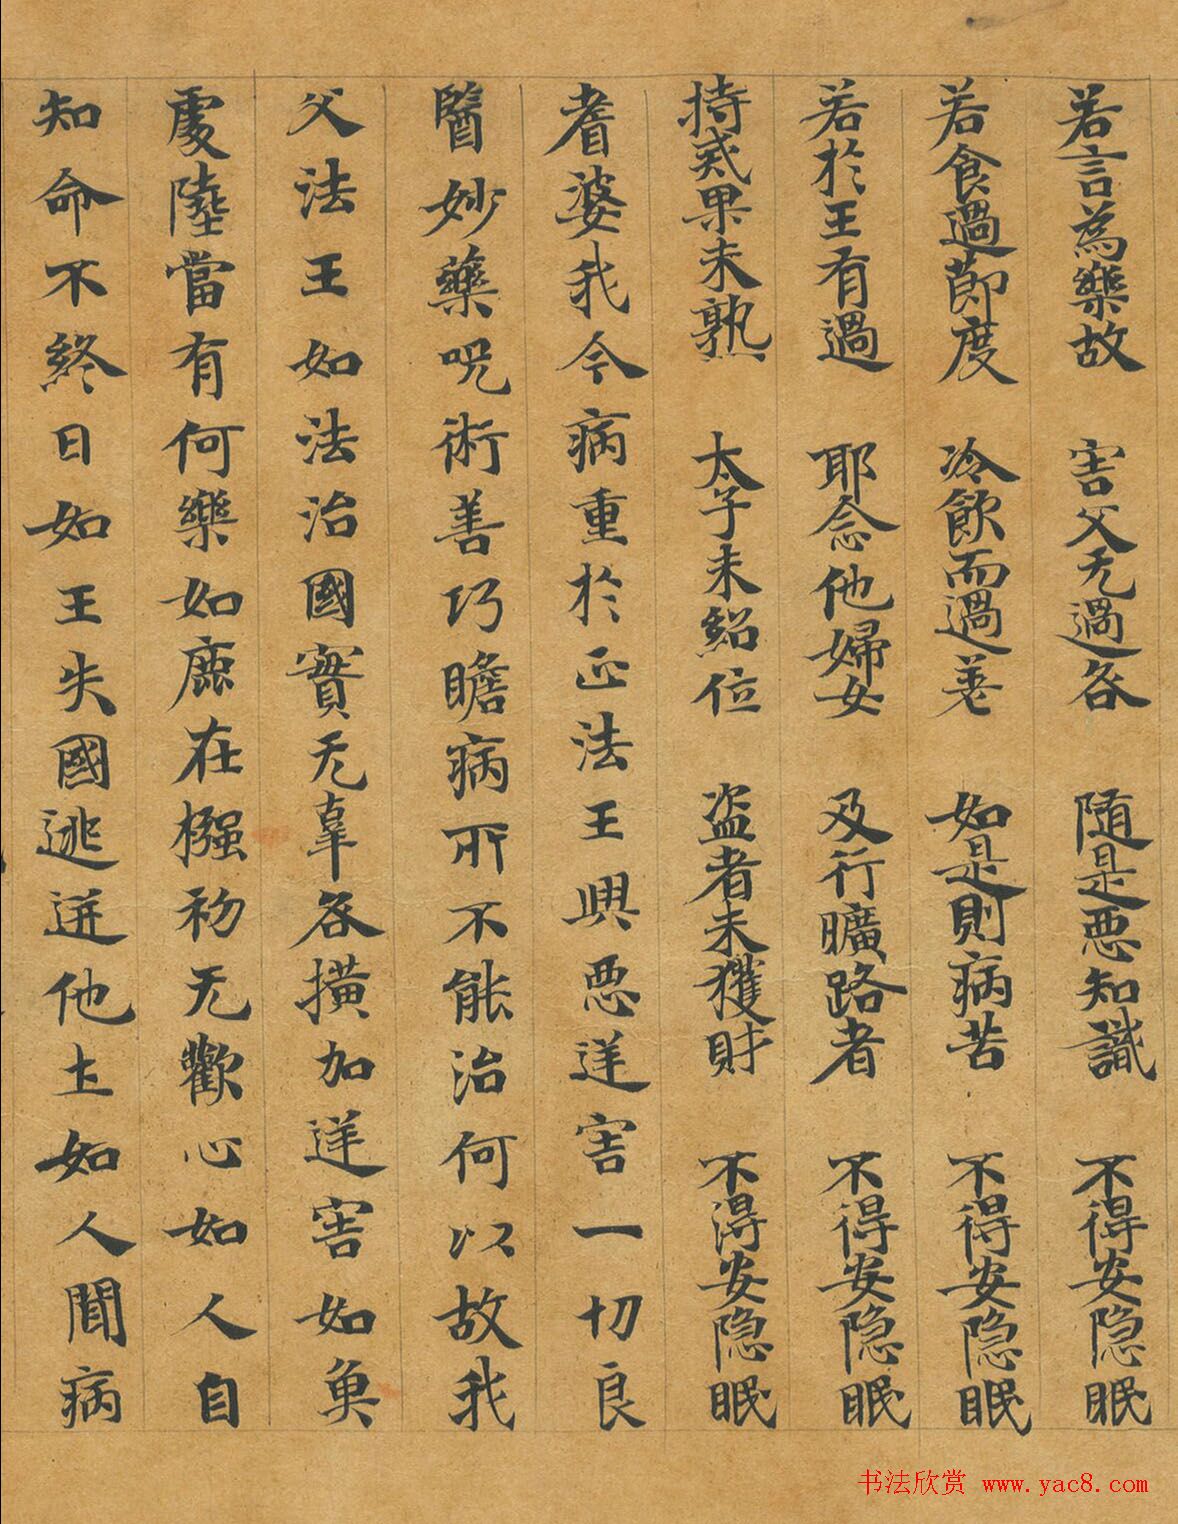 若言為樂故 害父无過咎 随是惡知識 不得安隐眠
若食過節度 冷飲而過差 如是則病苦 不得安隐眠
若於王有過 耶念他婦女 及行曠路者 不得安隐眠
持戒果未熟 太子未紹位 盗者未獲財 不得安隐眠
耆婆我今病重於正法王興惡逆害一切良
醫妙藥呪術善巧瞻病所不能治何以故我
父法王如法治國實无辜咎撗加逆害如魚
處陸當有何樂如鹿在摾初无歡心如人自
知命不終日如王失國逃迸他土如人聞病
书法欣赏 www.yac8.com